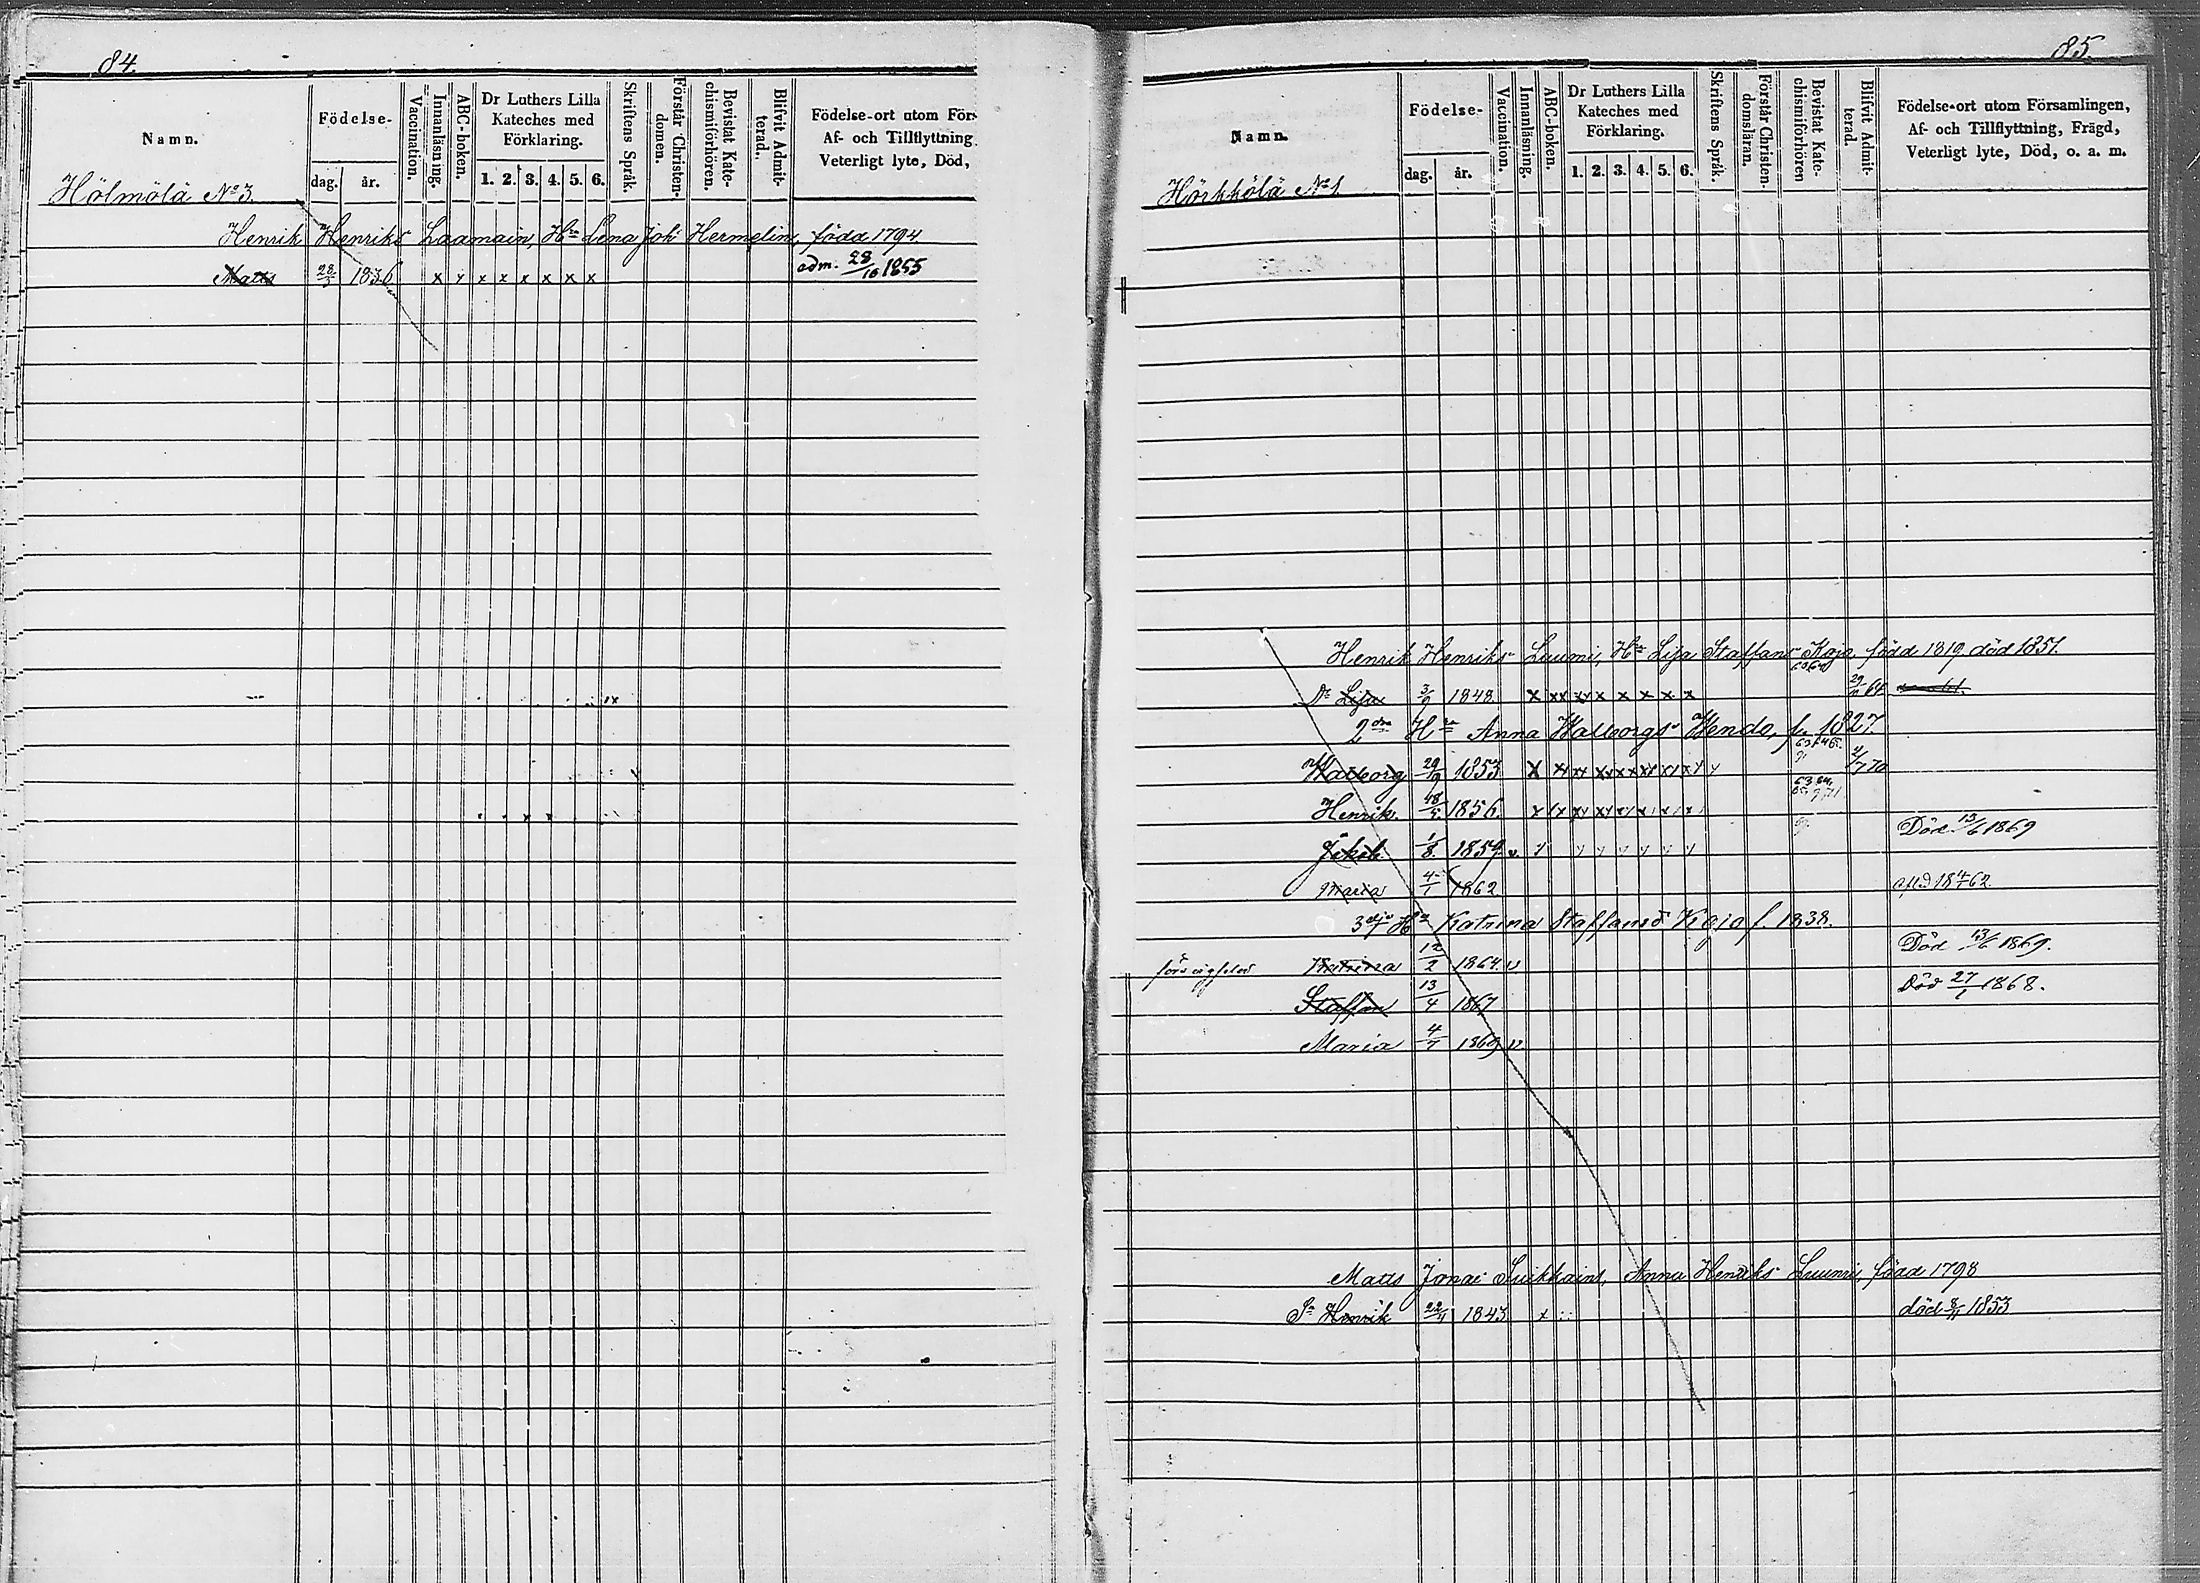 84.
Namn.
Födelse-
dag. år.
Vaccination.
Innanläsning.
ABC-boken.
Dr Luthers Lilla Kateches med Förklaring.
1. 2. 3. 4. 5. 6.
Skriftens Språk.
Förstår Christen-domen.
Bevistat Kate-chismiförhören.
Blifvit Admit-terad.
Födelse-ort utom För-
Af- och Tillflyttning
Veterligt lyte, Död,
Hölmölä No 3.
Henrik Henriks Laamain, Hu Lena Joh Hermelin, född 1794
Matts 28/5 1836 x x x x x x x x adm. 28/10 1855
85.
Namn.
Födelse-
dag. år.
Vaccination.
Innanläsning.
ABC-boken.
Dr Luthers Lilla Kateches med Förklaring.
1. 2. 3. 4. 5. 6.
Skriftens Språk.
Förstår Christen-domsläran.
Bevistat Kate-chismiförhören
Blifvit Admit-terad.
Födelse-ort utom Församlingen,
Af- och Tillflyttning, Frägd,
Veterligt lyte, Död, o. a. m.
Hörkkölä No 1
Henrik Henriks Luumi, Hu Lisa Staffans Kaja född 1819 död 1851.
Dr Lisa 3/9 1848. x xx xy x x x x x 29/11 64
2dra Hu Anna Walborgs Wendo, f. 1827.
Walborg 29/9 1853 4/7 70
Henrik. 18/5 1856.
Jakob 1/8 1859 v. Död 13/6 1869
Maria 4/1 1862 afled 18 4/1 62
3dje Hu Katrina Staffansd Kaja f. 1838.
Katrina 12/2 1864. v Död 13/6 1869.
Staffan 13/4 1867 Död 27/1 1868.
Maria 4/7 1869 v.
Matts Jonae Suikkain, Anna Henriks Luumi, född 1798
Sn Henrik 22/11 1843 x död 8/11 1853